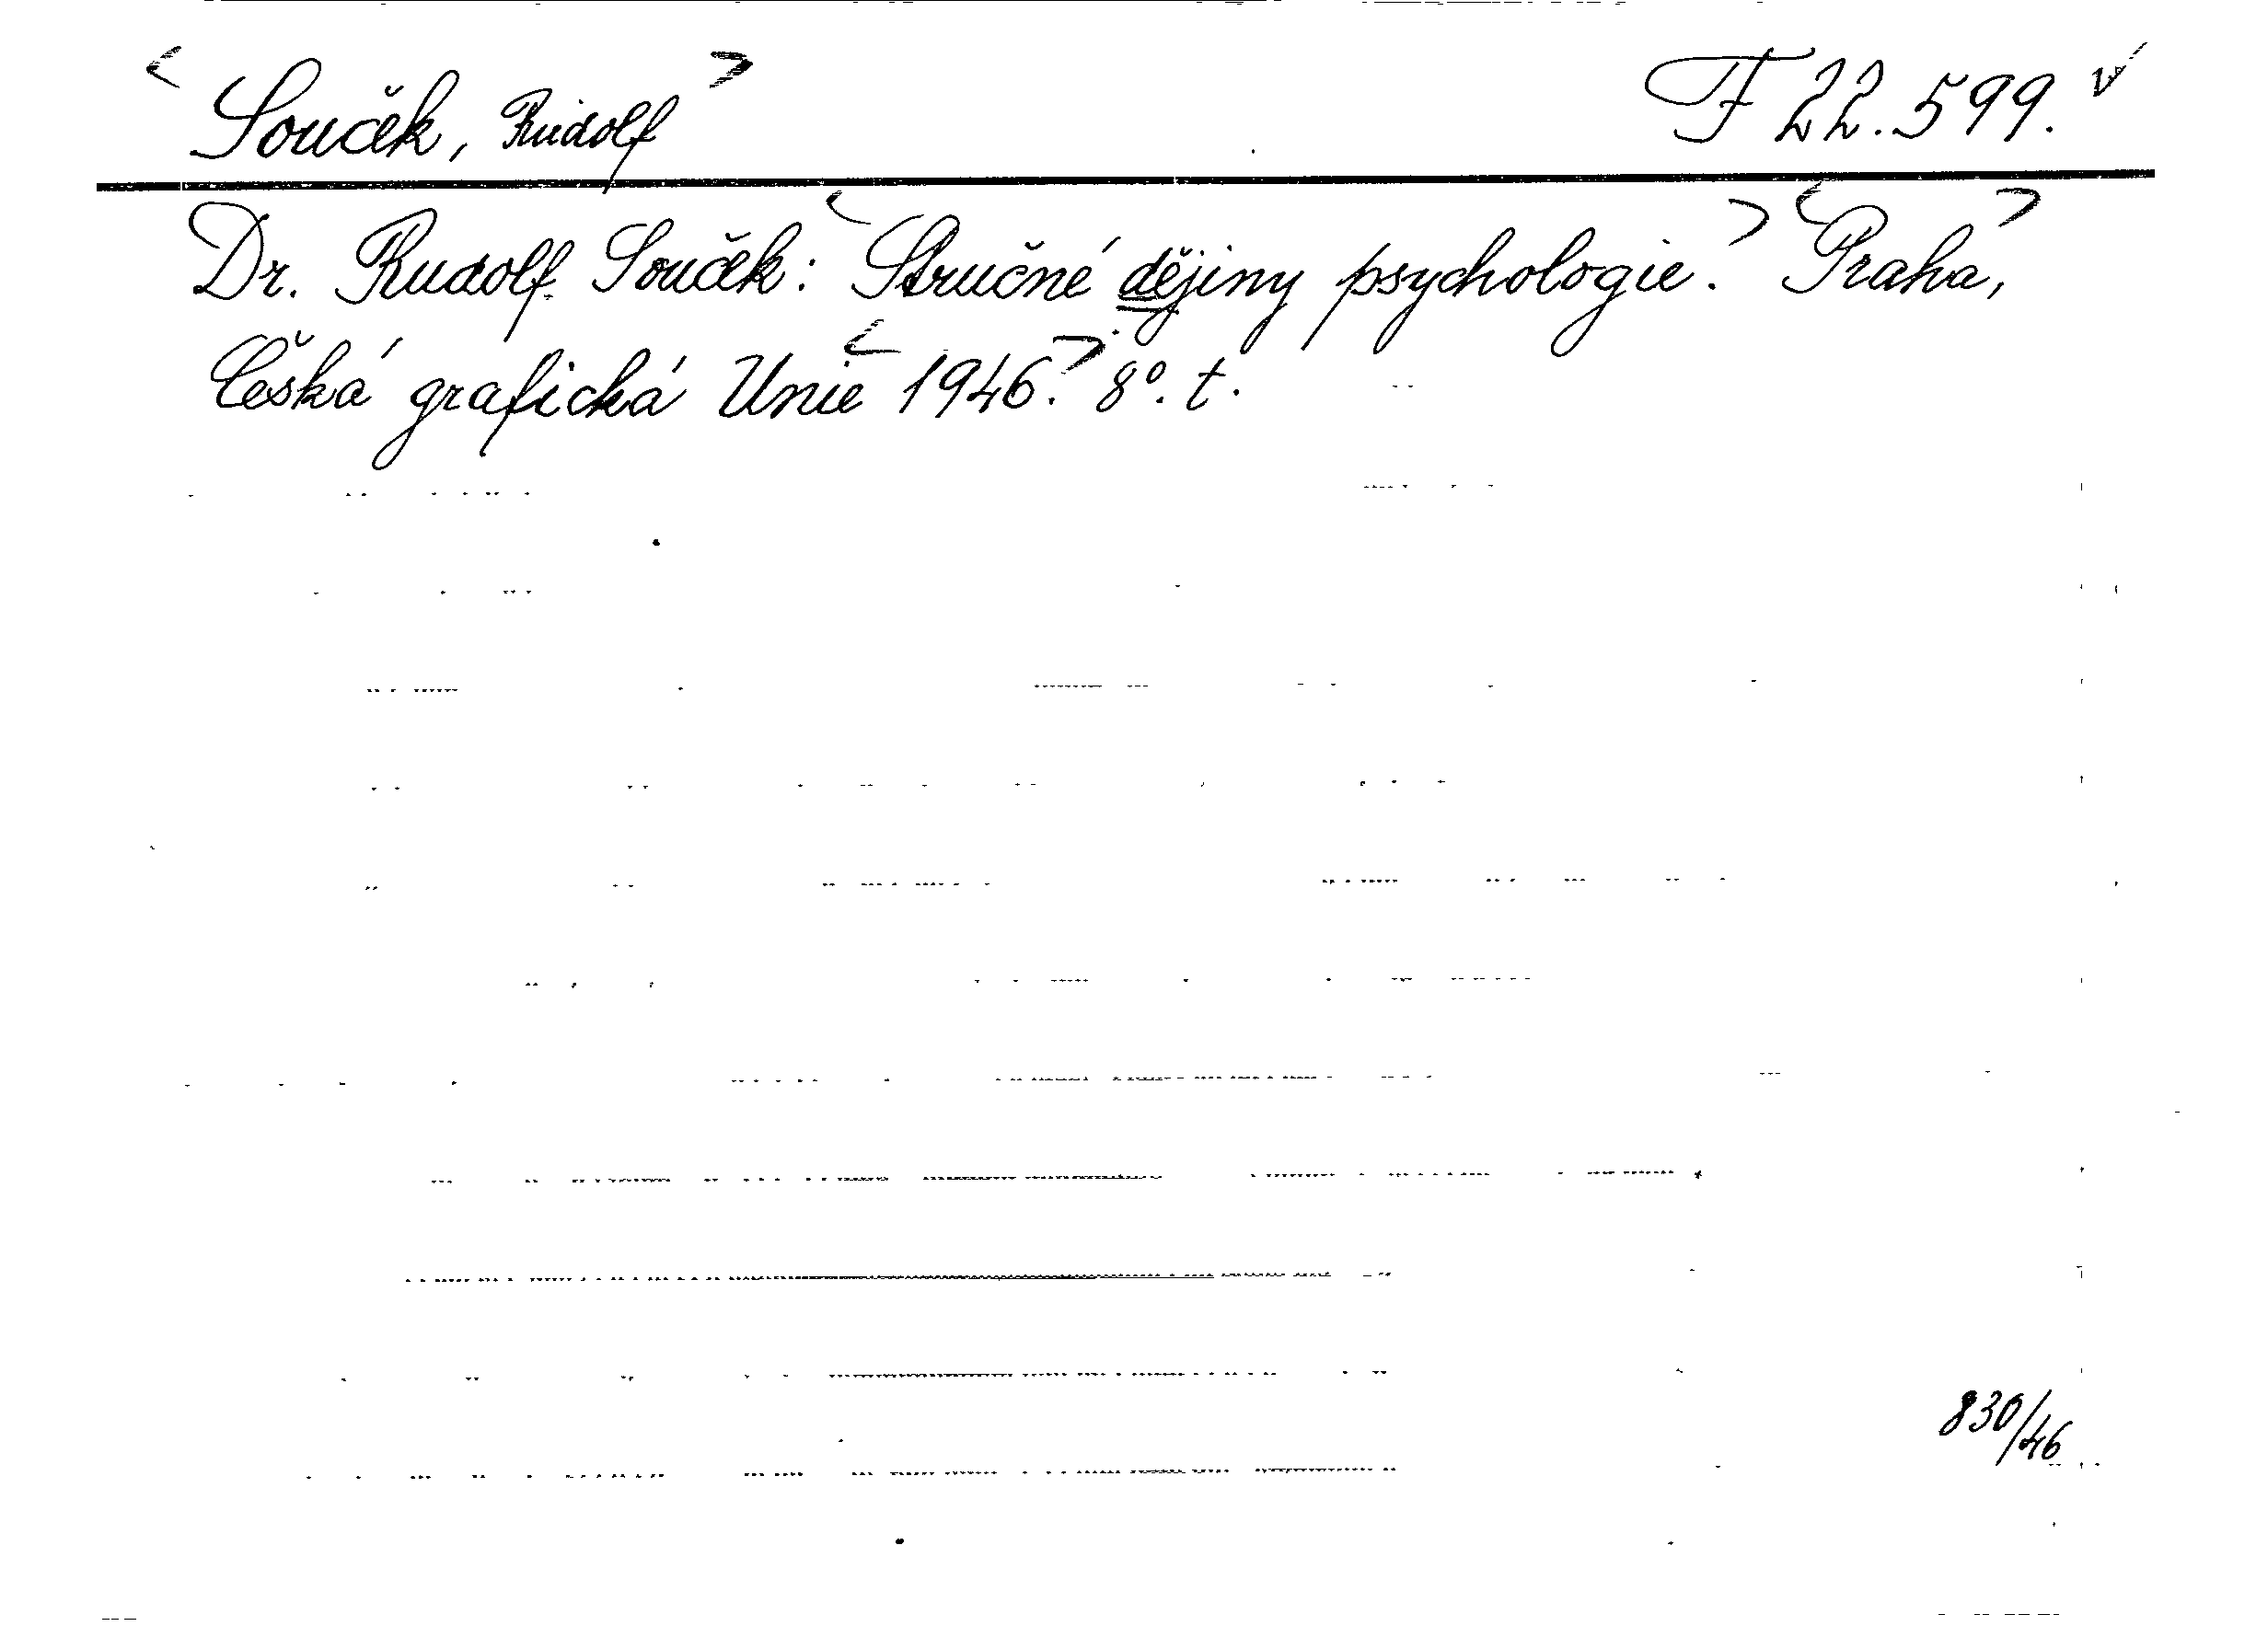 <Souček, Rudolf> F 22.599. v
Dr. Rudolf Souček: <Stručné dějiny psychologie.> <Praha,>
Česká grafická Unie <1946.> 8°. t.
830/46